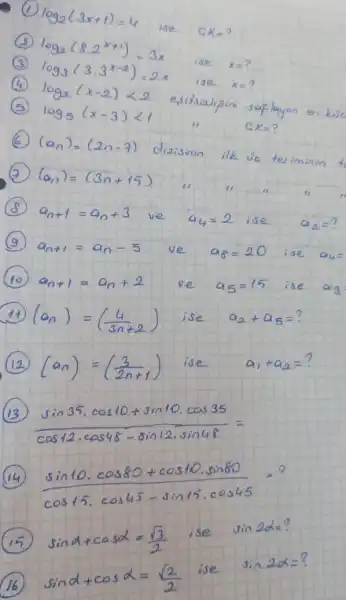 ① log₂(3x+1)=4 ise ÇK=?
② log₂(8.2ˣ⁺¹)=3x ise x=?
③ log₃(3.3ˣ⁻²)=2x ise x=?
④ log₂(x-2)<2 eşitsizliğini sağlayan en küç
⑤ log₅(x-3)<1 " ÇK=?
⑥ (aₙ)=(2n-7) dizisinin ilk üç teriminin t
⑦ (aₙ)=(3n+15) " " " "
⑧ aₙ₊₁=aₙ+3 ve a₄=2 ise a₂=?
⑨ aₙ₊₁=aₙ-5 ve a₈=20 ise a₄=
⑩ aₙ₊₁=aₙ+2 ve a₅=15 ise a₃=
⑪ (aₙ)=(4/3n+2) ise a₂+a₅=?
⑫ (aₙ)=(3/2n+1) ise a₁+a₂=?
⑬ sin35.cos10+sin10.cos35
cos12.cos48-sin12.sin48 =
⑭ sin10.cos80+cos10.sin80 =?
cos15.cos45-sin15.cos45
⑮ sinα+cosα=√3/2 ise sin2α=?
⑯ sinα+cosα=√2/2 ise sin2α=?